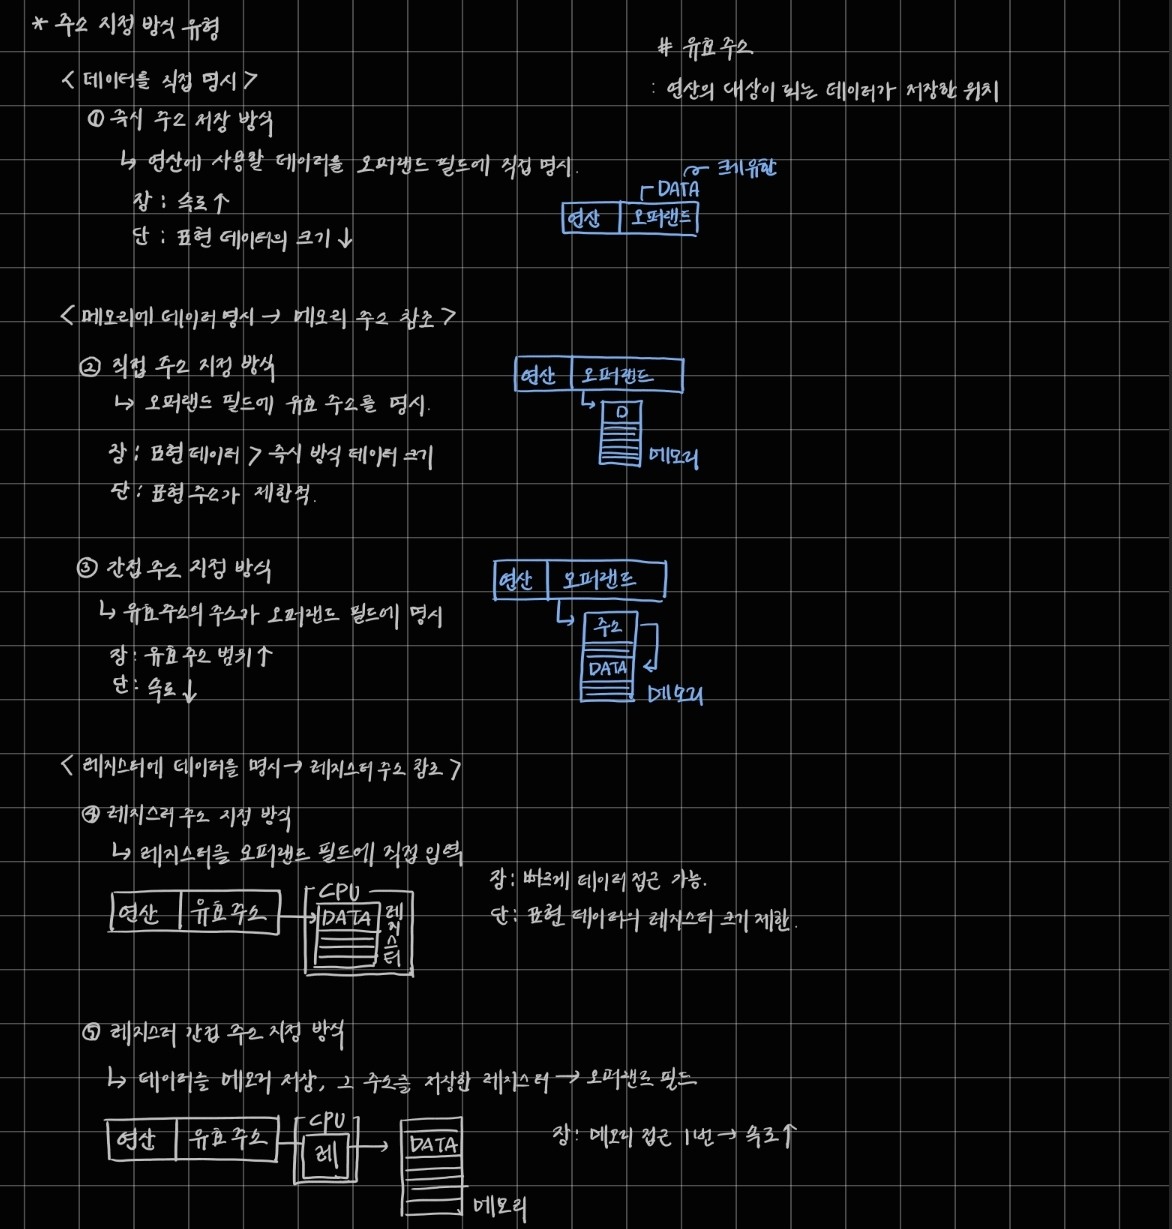 * 주소 지정 방식 유형
# 유효 주소
: 연산의 대상이 되는 데이터가 저장한 위치
< 데이터를 직접 명시 >
① 즉시 주소 저장 방식
↳ 연산에 사용할 데이터를 오퍼랜드 필드에 직접 명시.
장 : 속도 ↑
단 : 표현 데이터의 크기 ↓
DATA 크기 유한
연산 오퍼랜드
< 메모리에 데이터 명시 → 메모리 주소 참조 >
② 직접 주소 지정 방식
↳ 오퍼랜드 필드에 유효 주소를 명시.
장 : 표현 데이터 > 즉시 방식 데이터 크기
단 : 표현 주소가 제한적.
연산 오퍼랜드
D
메모리
③ 간접 주소 지정 방식
↳ 유효주소의 주소가 오퍼랜드 필드에 명시
장 : 유효 주소 범위 ↑
단 : 속도 ↓
연산 오퍼랜드
주소
DATA
메모리
< 레지스터에 데이터를 명시 → 레지스터 주소 참조 >
④ 레지스터 주소 지정 방식
↳ 레지스터를 오퍼랜드 필드에 직접 입력
연산 유효 주소
CPU
DATA
레지스터
장 : 빠르게 데이터 접근 가능.
단 : 표현 데이터의 레지스터 크기 제한.
⑤ 레지스터 간접 주소 지정 방식
↳ 데이터를 메모리 저장, 그 주소를 저장한 레지스터 → 오퍼랜드 필드
연산 유효 주소
CPU
레
DATA
메모리
장 : 메모리 접근 1번 → 속도 ↑